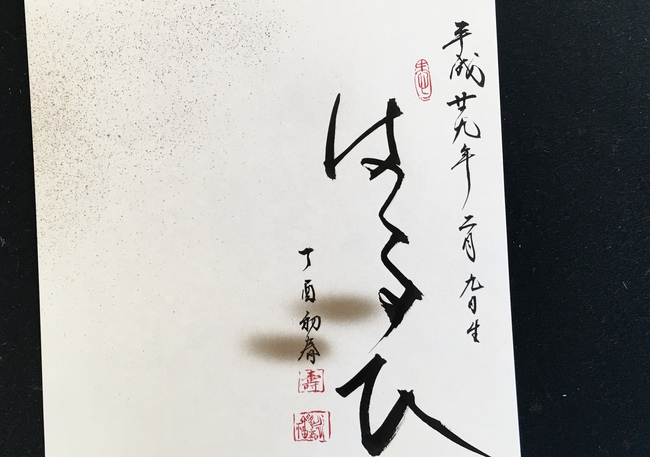 平成廿九年二月九日生
はるひ
丁酉初春
壽